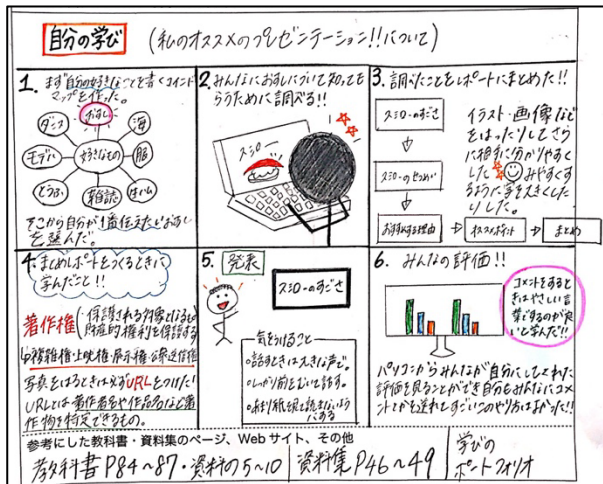 自分の学び (私のオススメのプレゼンテーション!!について)
1. まず自分の好きなことを書くマインド
マップを作った。
おすし
ダンス
海
モデル
好きなもの
服
とうふ
雑誌
そこから自分が1番伝えたいおすし
を選んだ。
2. みんなにおすしについて知っても
らうために調べる!!
スシロー
3. 調べたことをレポートにまとめた!!
スシローのすごさ
スシローの
おすすめする理由
オススメポイント
まとめ
イラスト・画像など
をはったりしてさら
に相手に分かりやすく
した
みやすくす
るように字を大きくした
りした。
4. まとめレポートをつくるときに
学んだこと!!
著作権 (・保護される対象となるもの
財産的権利を保護する
↳複雑権・上映権・展示権・公衆送信権
写真をはるときは必ずURLをつけた!
URLとは著作者名や作品名など著
作物を特定できるもの。
5. 発表
スシローのすごさ
気をつけること
・話すときは大きな声で。
・しっかり前をむいて話す。
・あまり紙ばっか読まないよう
にする
6. みんなの評価!!
コメントをすると
きはやさしい言
葉でするのが良
いと学んだ!!
パソコンからみんなが自分にしてくれた
評価を見ることができ自分もみんなにコメ
ントとかを送れてすごいこのやり方はよかった!!
参考にした教科書・資料集のページ、Webサイト、その他
教科書P84~87・資料の5~10
資料集P46~49
学びの
ポートフォリオ